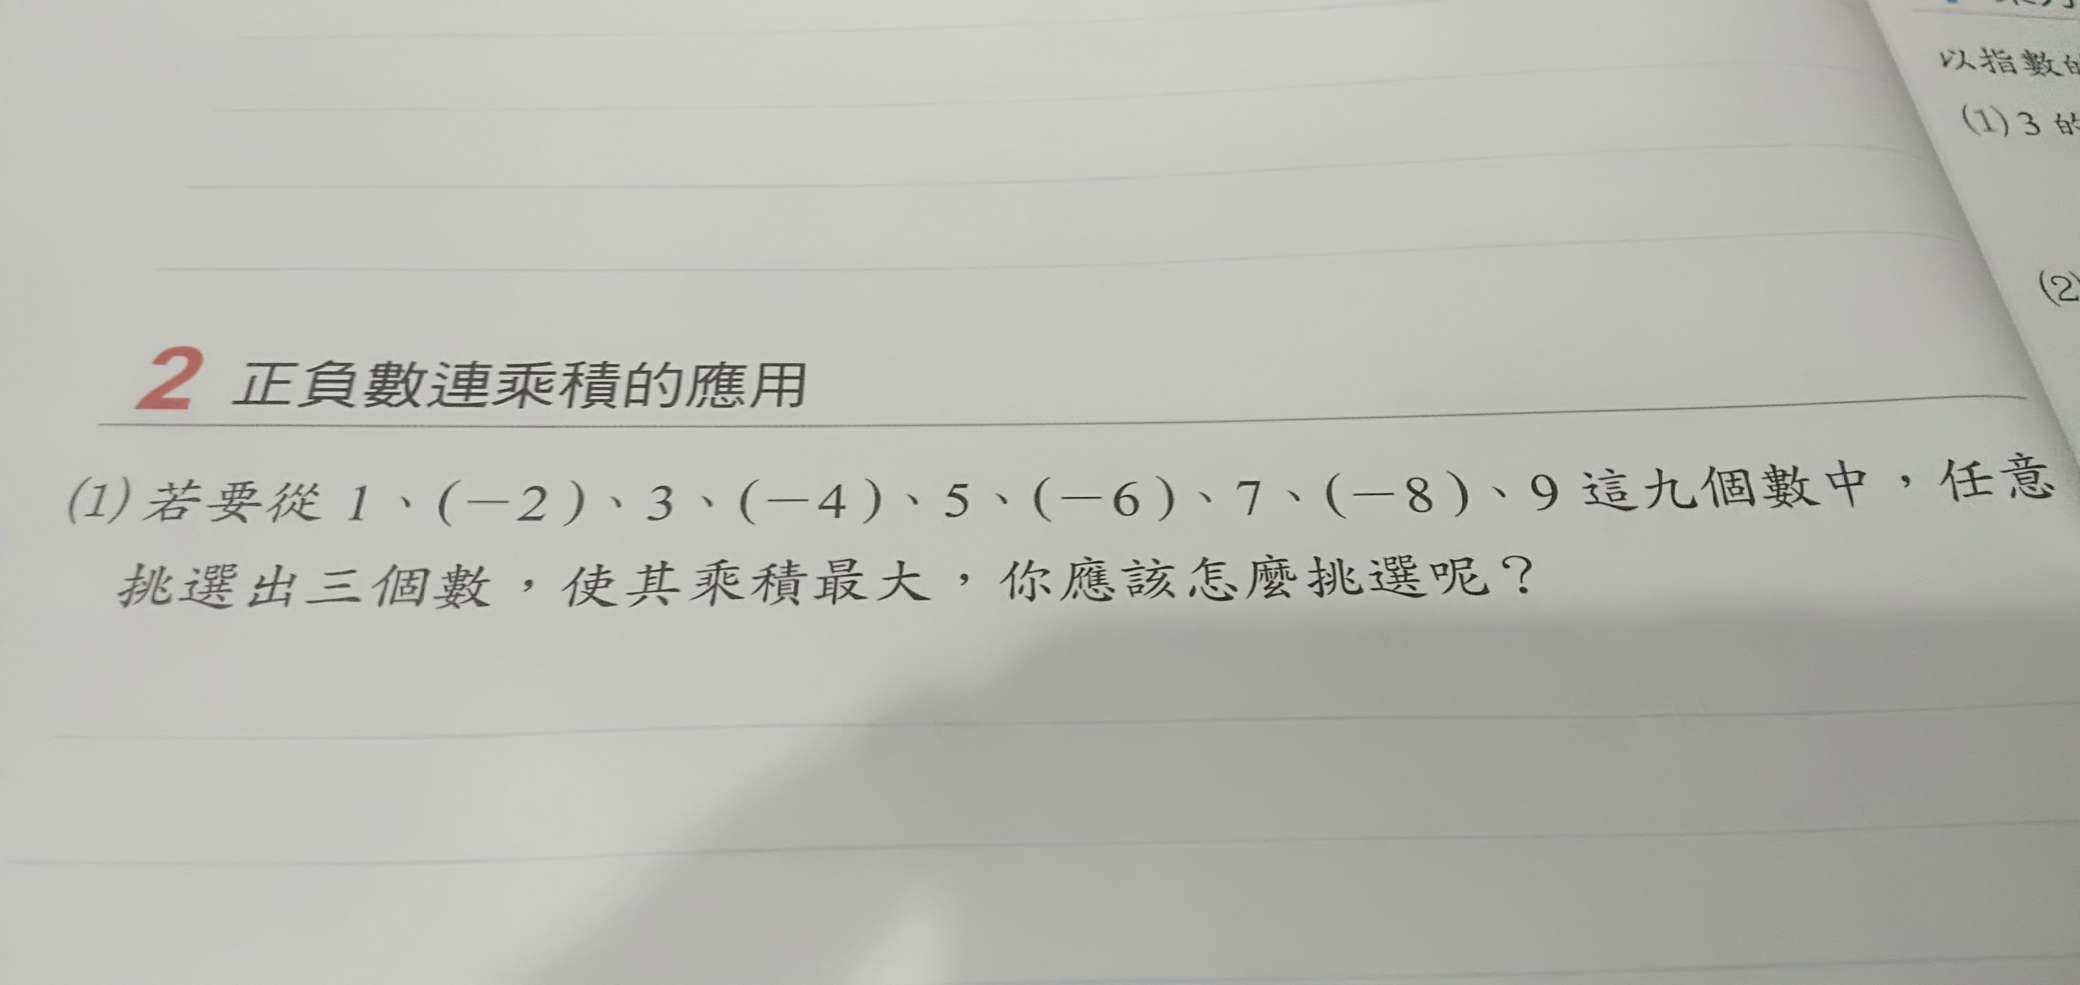 2 正負數連乘積的應用
(1) 若要從 1、(-2)、3、(-4)、5、(-6)、7、(-8)、9 這九個數中，任意
挑選出三個數，使其乘積最大，你應該怎麼挑選呢？
以指數的
(1) 3 的
(2)